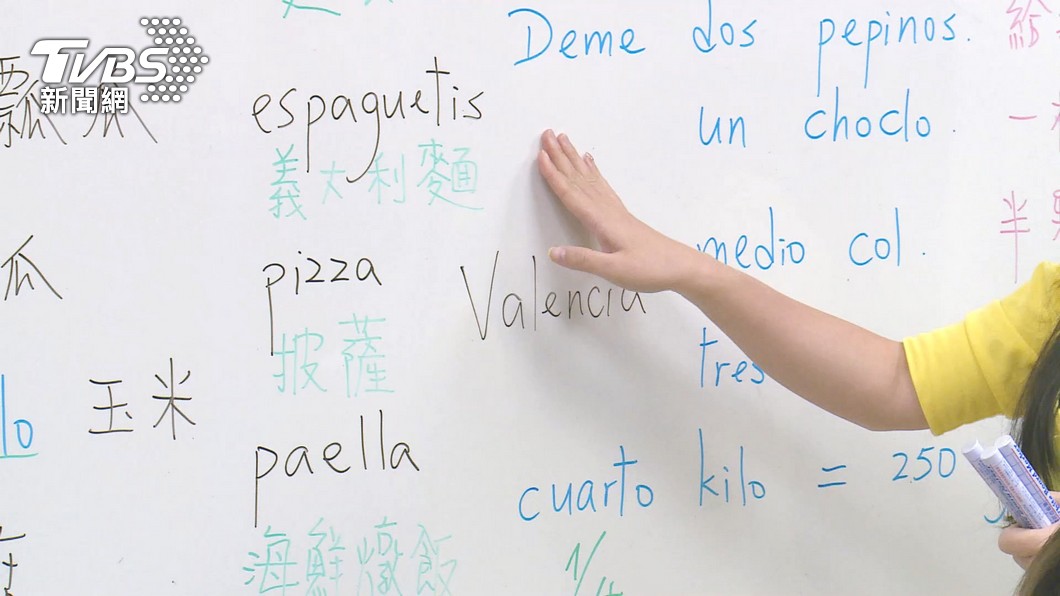 TVBS
新聞網
瓜
玉米
lo
espaguetis
義大利麵
pizza
披薩
paella
海鮮燉飯
Valencia
Deme dos pepinos.
un choclo.
medio col.
tres
cuarto kilo = 250
1/4
給
一
半